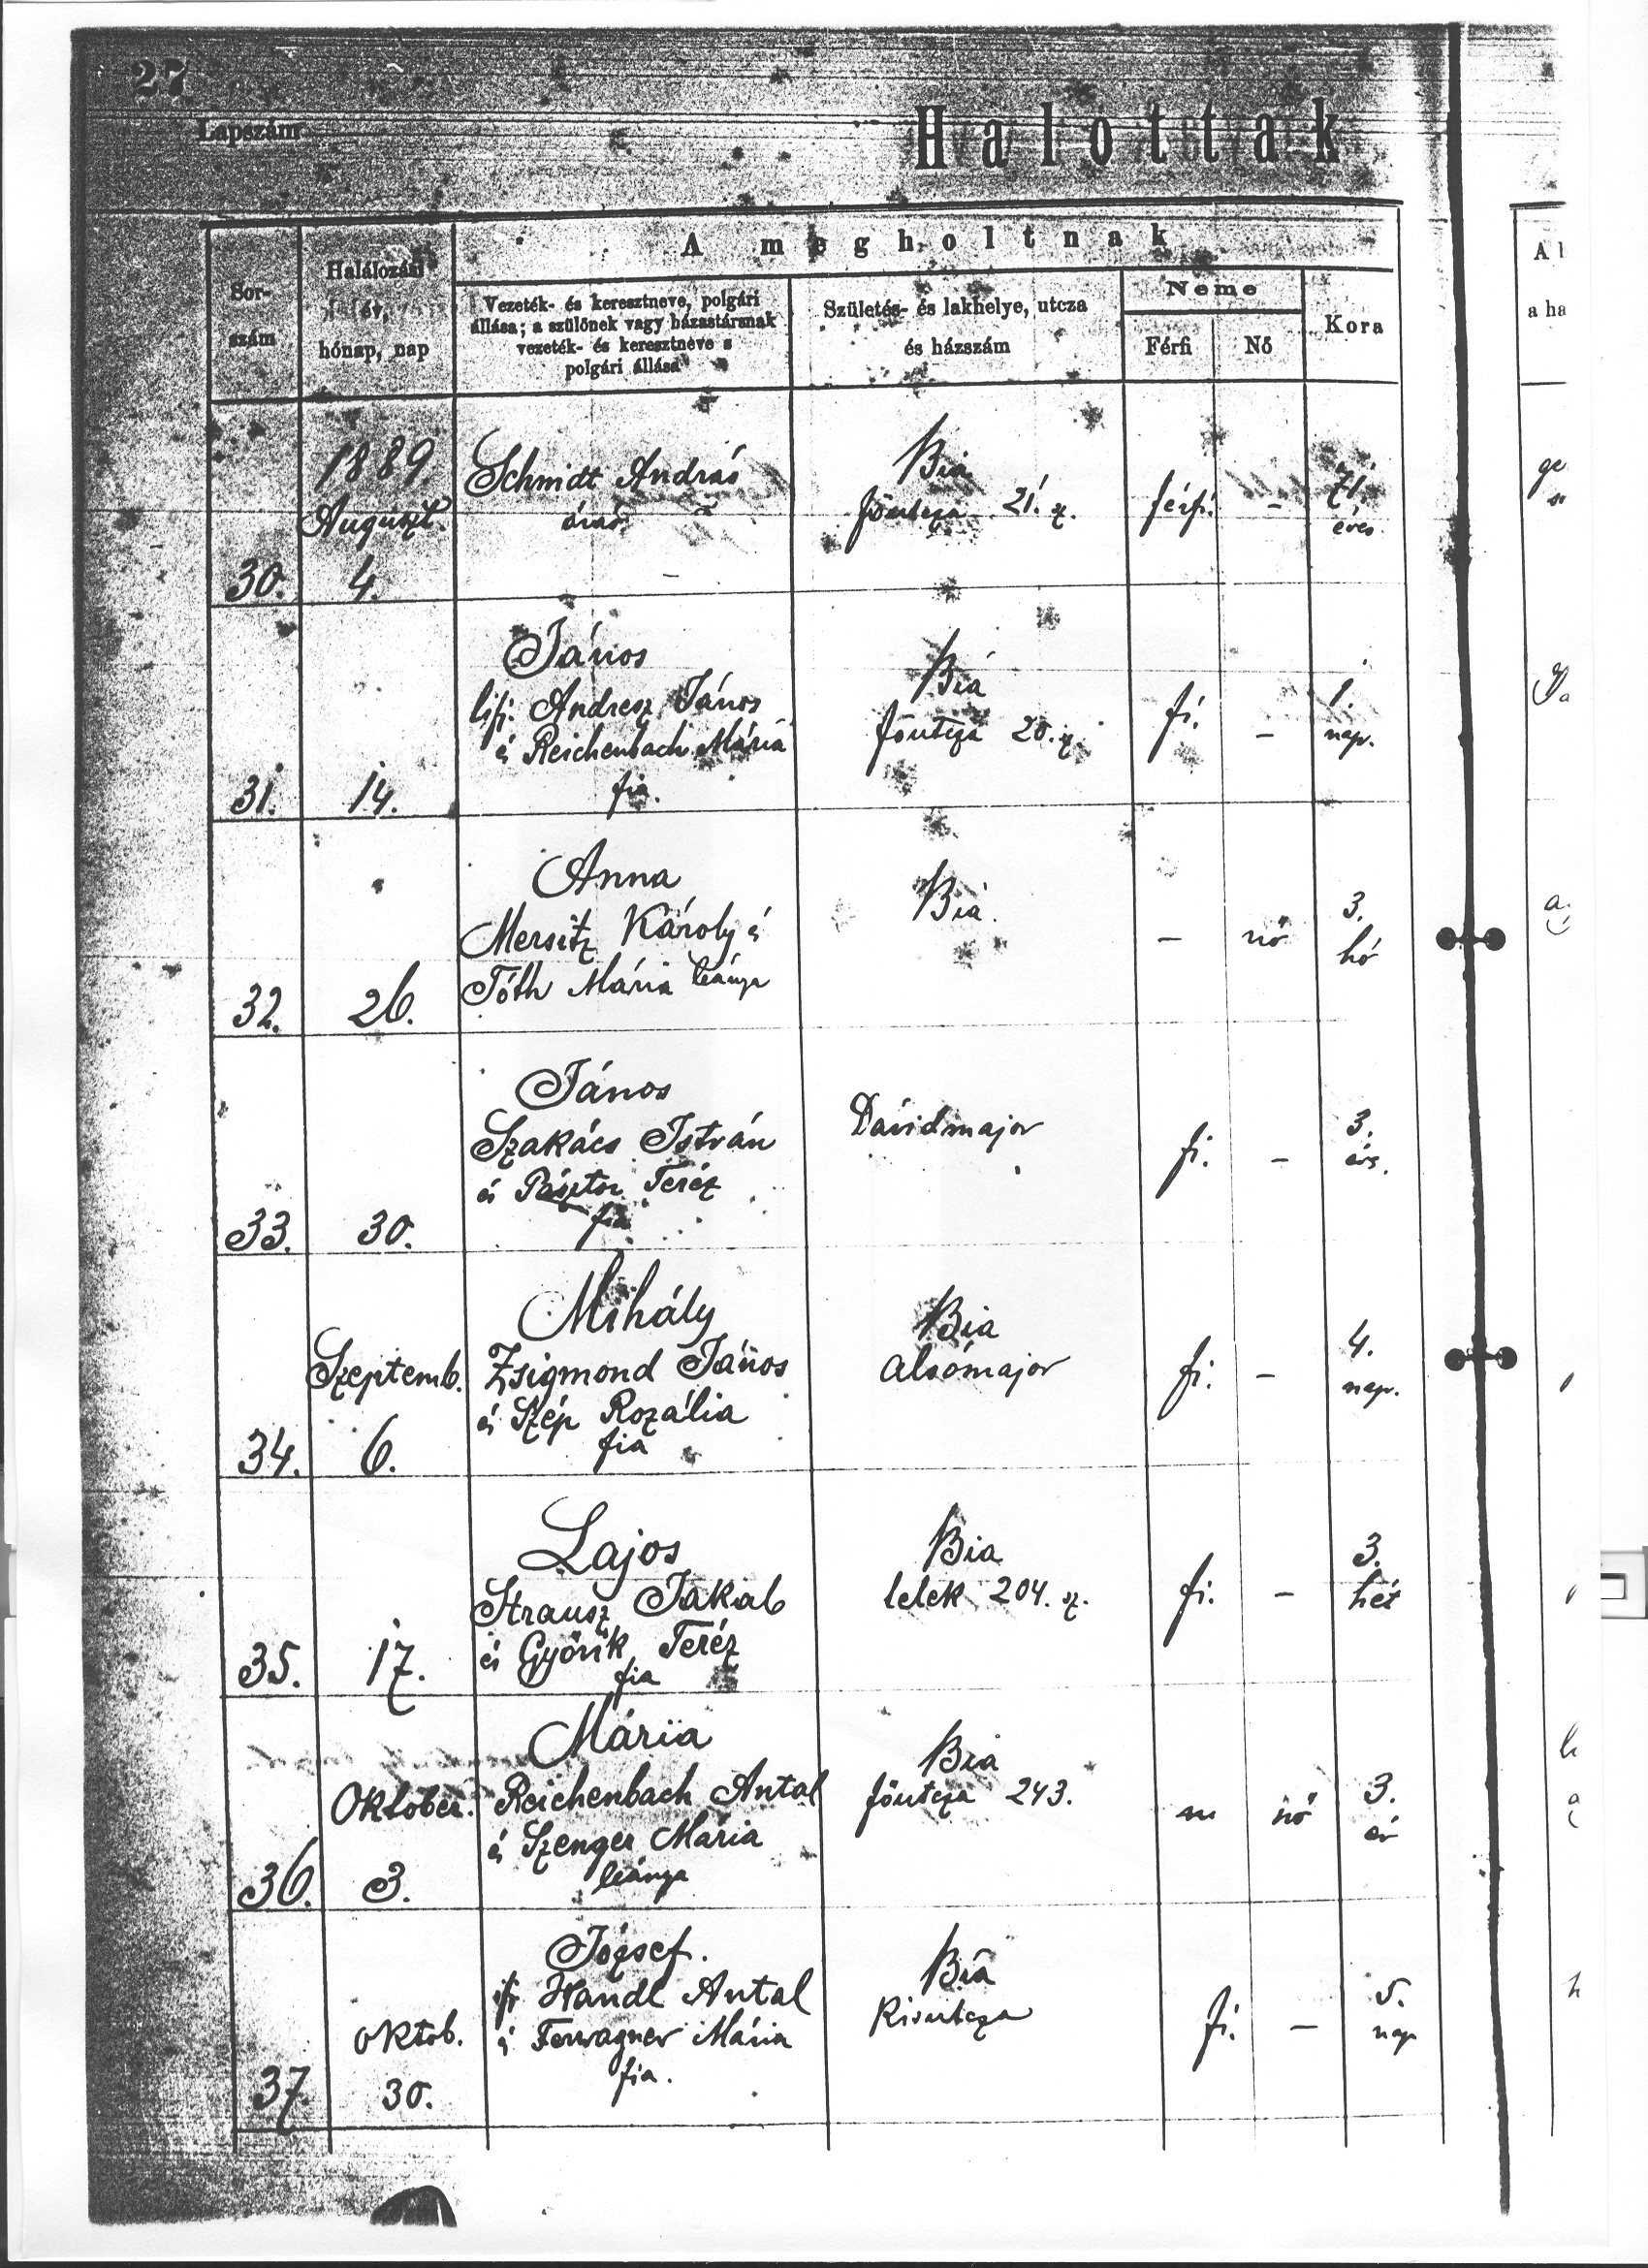 27
Lapszám
Halottak
A megholtnak
Sor-
szám
Halálozási
év,
hónap, nap
Vezeték- és keresztneve, polgári
állása; a szülőnek vagy házastársnak
vezeték- és keresztneve s
polgári állása
Születés- és lakhelye, utcza
és házszám
Neme
Férfi
Nő
Kora
A
a ha
30.
1889
August.
4.
Schmidt András
Bia
főutcza 21. sz.
férfi.
-
71.
éves
31.
14.
János
Andresz János
és Reichenbach Mária
fia.
Bia
főutcza 20. sz.
fi.
-
1.
nap.
32.
26.
Anna
Mersitz Károly és
Tóth Mária leánya
Bia.
-
nő
3.
hó
33.
30.
János
Szakács István
és Pásztor Teréz
fia
Dávidmajor
fi.
-
3.
34.
Szeptemb.
6.
Mihály
Zsigmond János
és Szép Rozália
fia
Bia
alsómajor
fi.
-
4.
nap.
35.
17.
Lajos
Strausz Jakab
és Győrik Teréz
fia
Bia
telek 204. sz.
fi.
-
3.
hét
36.
Október.
3.
Mária
Reichenbach Antal
és Szenger Mária
leánya
Bia
főutcza 243.
nő
3.
év
37.
Oktob.
30.
József.
ifj Handl Antal
és Ferwagner Mária
fia.
Bia
Kisutcza
fi.
-
5.
nap